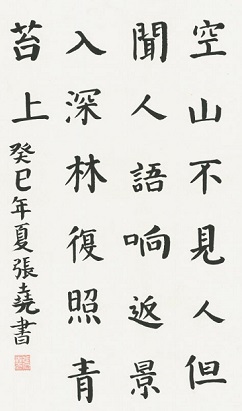 空山不見人但
聞人語响返景
入深林復照青
苔上
癸巳年夏張堯書